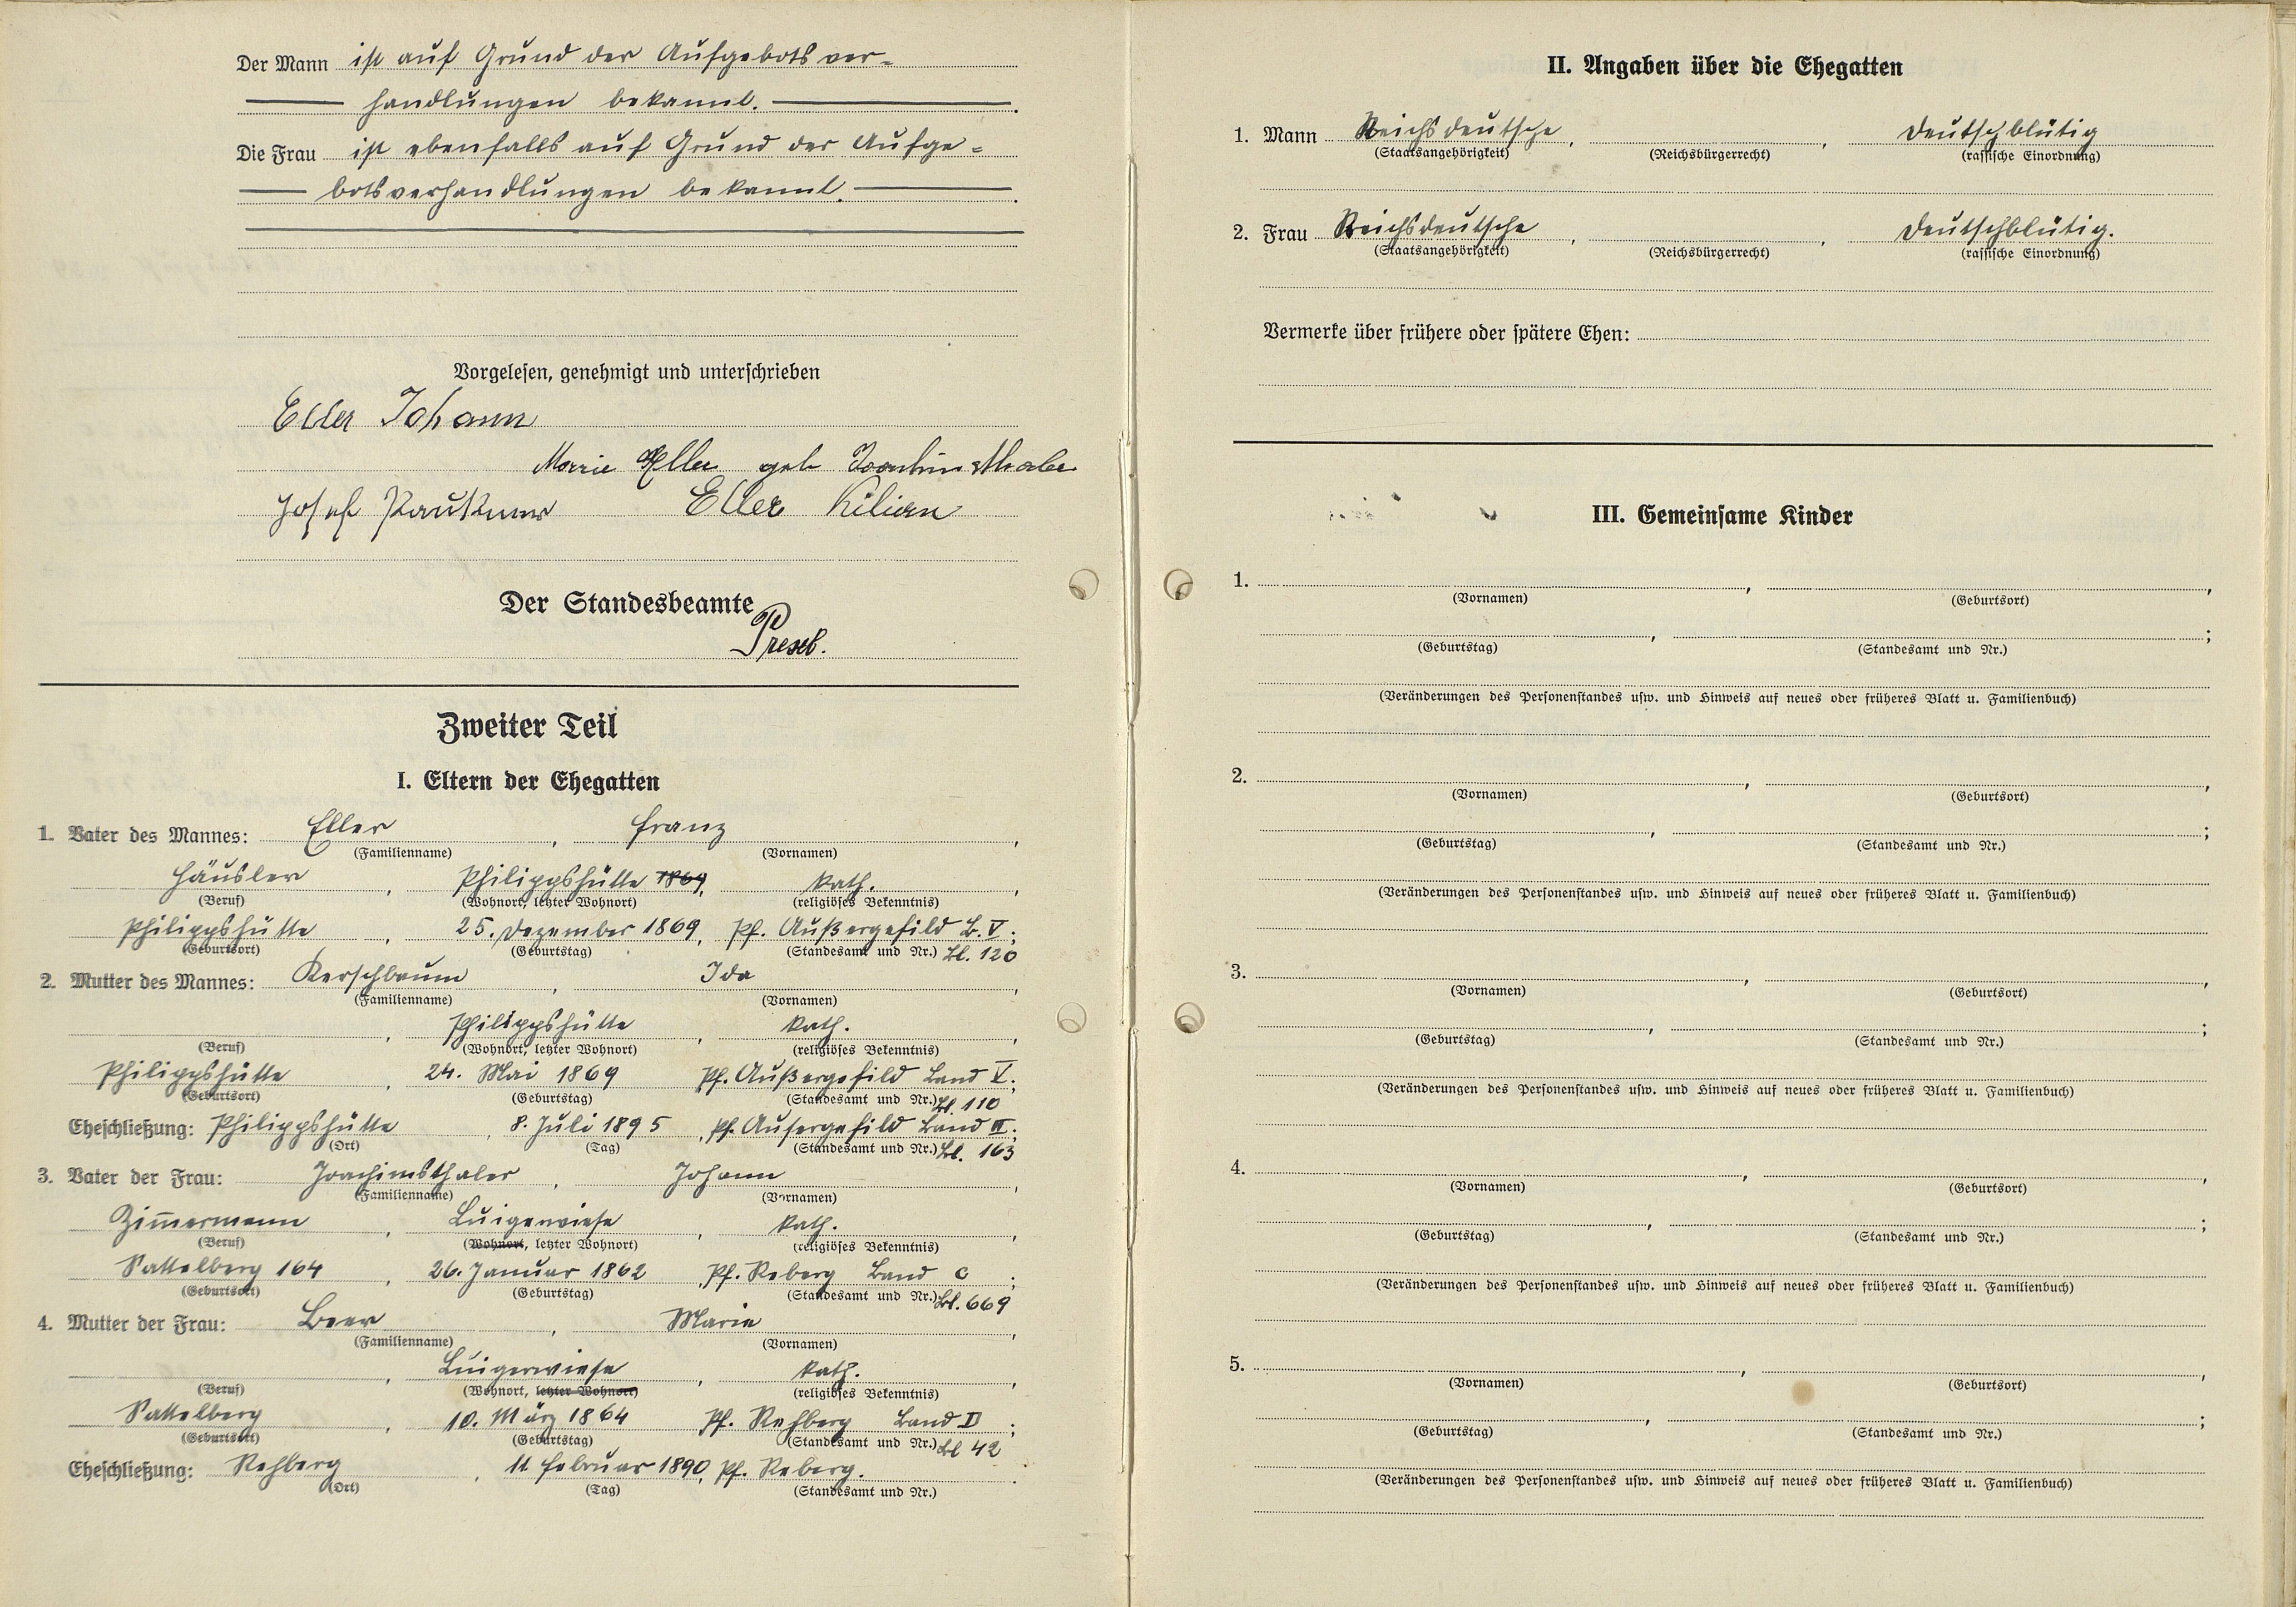 Der Mann ist auf Grund der Aufgebotsver-
handlungen bekannt.
Die Frau ist ebenfalls auf Grund der Aufge-
botsverhandlungen bekannt.
Vorgelesen, genehmigt und unterschrieben
Eller Johann
Marie Eller geb Joachimsthaler
Josef Eller Kilian
Der Standesbeamte
Zweiter Teil
I. Eltern der Ehegatten
1. Vater des Mannes: Eller, Franz,
(Familienname) (Vornamen)
Häusler, Philippshütte 1869, kath.,
(Beruf) (Wohnort, letzter Wohnort) (religiöses Bekenntnis)
Philippshütte, 25. Dezember 1869, Pf. Außergefild B. V;
(Geburtsort) (Geburtstag) (Standesamt und Nr.) Bl. 120
2. Mutter des Mannes: Kerschbaum, Ida,
(Familienname) (Vornamen)
, Philippshütte, kath.,
(Beruf) (Wohnort, letzter Wohnort) (religiöses Bekenntnis)
Philippshütte, 24. Mai 1869 Pf. Außergefild Band V;
(Geburtsort) (Geburtstag) (Standesamt und Nr.) Bl. 110
Eheschließung: Philippshütte, 8. Juli 1895, Pf. Aufergefild Band III;
(Ort) (Tag) (Standesamt und Nr.) Bl. 163
3. Vater der Frau: Joachimsthaler, Johann,
(Familienname) (Vornamen)
Zim̄ermann, Luigerwiese, kath.,
(Beruf) (Wohnort, letzter Wohnort) (religiöses Bekenntnis)
Sattelberg 164, 26. Januar 1862, Pf. Reberg Band C;
(Geburtsort) (Geburtstag) (Standesamt und Nr.) Bl. 669
4. Mutter der Frau: Beer, Marie,
(Familienname) (Vornamen)
, Luigerwiese, kath.,
(Beruf) (Wohnort, letzter Wohnort) (religiöses Bekenntnis)
Sattelberg, 10. März 1864 Pf. Rehberg Band D;
(Geburtsort) (Geburtstag) (Standesamt und Nr.) Bl 42
Eheschließung: Rehberg, 11 Februar 1890, Pf. Reberg.
(Ort) (Tag) (Standesamt und Nr.)
II. Angaben über die Ehegatten
1. Mann Reichsdeutsche, , Deutschblütig
(Staatsangehörigkeit) (Reichsbürgerrecht) (rassische Einordnung)
2. Frau Reichsdeutsche, , Deutschblütig.
(Staatsangehörigkeit) (Reichsbürgerrecht) (rassische Einordnung)
Vermerke über frühere oder spätere Ehen:
III. Gemeinsame Kinder
1. , ,
(Vornamen) (Geburtsort)
, ;
(Geburtstag) (Standesamt und Nr.)
(Veränderungen des Personenstandes usw. und Hinweis auf neues oder früheres Blatt u. Familienbuch)
2. , ,
(Vornamen) (Geburtsort)
, ;
(Geburtstag) (Standesamt und Nr.)
(Veränderungen des Personenstandes usw. und Hinweis auf neues oder früheres Blatt u. Familienbuch)
3. , ,
(Vornamen) (Geburtsort)
, ;
(Geburtstag) (Standesamt und Nr.)
(Veränderungen des Personenstandes usw. und Hinweis auf neues oder früheres Blatt u. Familienbuch)
4. , ,
(Vornamen) (Geburtsort)
, ;
(Geburtstag) (Standesamt und Nr.)
(Veränderungen des Personenstandes usw. und Hinweis auf neues oder früheres Blatt u. Familienbuch)
5. , ,
(Vornamen) (Geburtsort)
, ;
(Geburtstag) (Standesamt und Nr.)
(Veränderungen des Personenstandes usw. und Hinweis auf neues oder früheres Blatt u. Familienbuch)